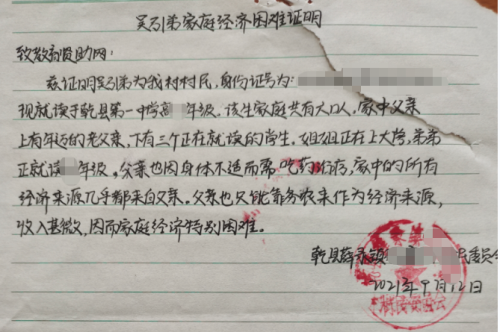 吴引弟家庭经济困难证明
致教育资助网:
兹证明吴引弟为我村村民,身份证号为:
现就读于乾县第一中学高 年级,该生家庭共有六口人,家中父亲
上有年迈的老父亲,下有三个正在就读的学生.姐姐正在上大学,弟弟
正就读 年级.父亲也因身体不适而需吃药维存,家中的所有
经济来源几乎都来自父亲.父亲也只能靠务农来作为经济来源,
收入甚微,因而家庭经济特别困难.
乾县薛录镇 民委员会
2021年9月12日